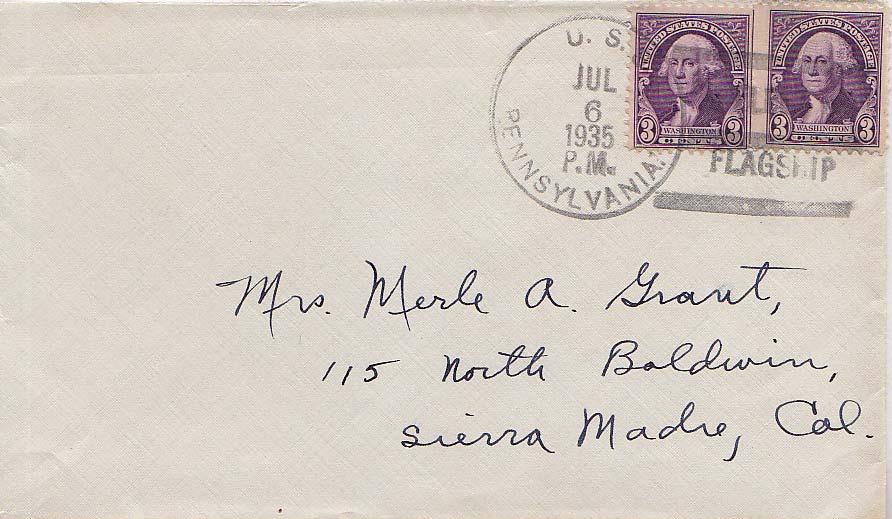 U. S.
JUL
6
1935
P.M.
PENNSYLVANIA.
UNITED STATES POSTAGE
3 WASHINGTON 3
CENTS
UNITED STATES POSTAGE
3 WASHINGTON 3
CENTS
FLAGSHIP
Mrs. Merle A. Grant,
115 North Baldwin,
Sierra Madre, Cal.